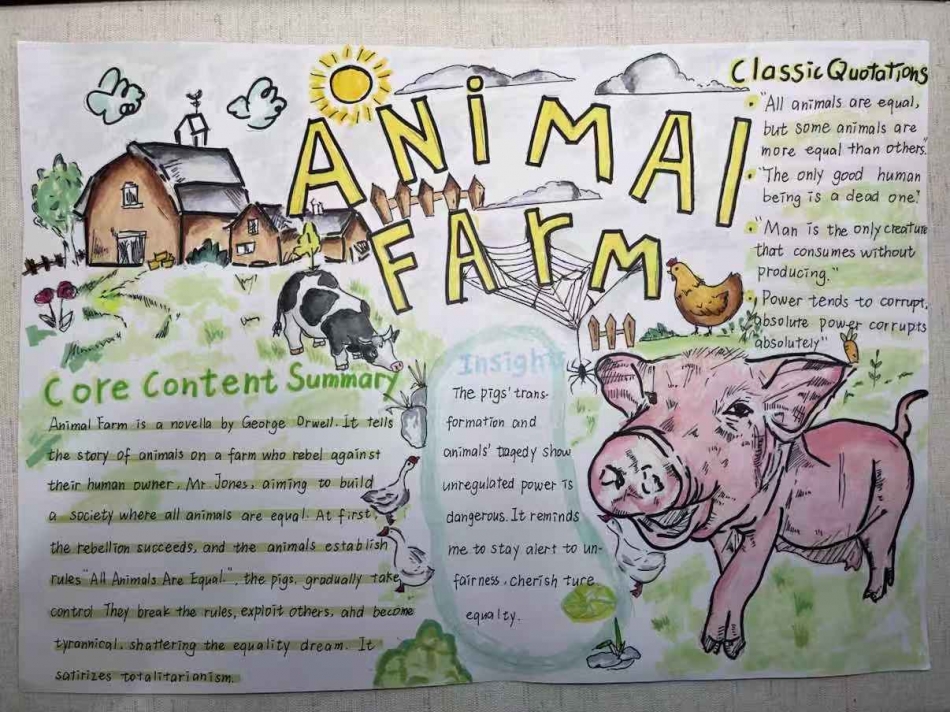 ANiMAl
FArM
Classic Quotations
"All animals are equal,
but some animals are
more equal than others."
"The only good human
being is a dead one."
"Man is the only creature
that consumes without
producing."
Power tends to corrupt,
absolute power corrupts
absolutely"
Core Content Summary
Animal Farm is a novella by George Orwell. It tells
the story of animals on a farm who rebel against
their human owner, Mr Jones, aiming to build
a society where all animals are equal. At first,
the rebellion succeeds, and the animals establish
rules "All Animals Are Equal.", the pigs, gradually take
control They break the rules, exploit others, and become
tyrannical, shattering the equality dream. It
satirizes totalitarianism.
Insights
The pigs' trans-
formation and
animals' tagedy show
unregulated power is
dangerous. It reminds
me to stay alert to un-
fairness, cherish ture
equalty.